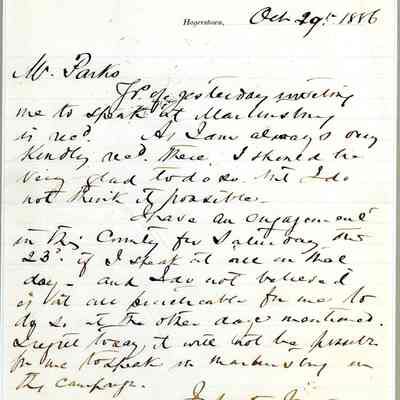 Hagerstown, Oct 29th 1886
Mr. Parks
Yrs of yesterday inviting
me to speak at Martinsburg
is recd. As I am always very
kindly recd. there, I should be
very glad to do so. but I do
not think it possible.
I have an engagement
in this County for Saturday the
23d. if I speak at all on that
day - and I do not believe
it at all practicable for me to
do so at the other days mentioned.
I regret to say, it will not be possible
for me to speak in Martinsburg in
this campaign.